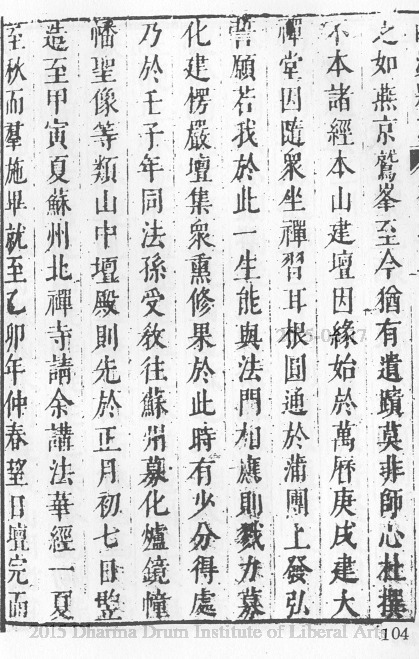 之如燕京鷲峯至今猶有遺蹟莫非師心杜撰
不本諸經本山建壇因緣始於萬曆庚戌建大
禪堂因隨眾坐禪習耳根圓通於蒲團上發弘
誓願若我於此一生能與法門相應則戮力募
化建楞嚴壇集衆熏修果於此時有少分得處
乃於壬子年同法孫受教往蘇州募化爐鏡幢
幡聖像等類山中壇殿則先於正月初七日竪
造至甲寅夏蘇州北禪寺請余講法華經一夏
至秋而羣施畢就至乙卯年仲春望日壇完而
2015 Dharma Drum Institute of Liberal Arts
104